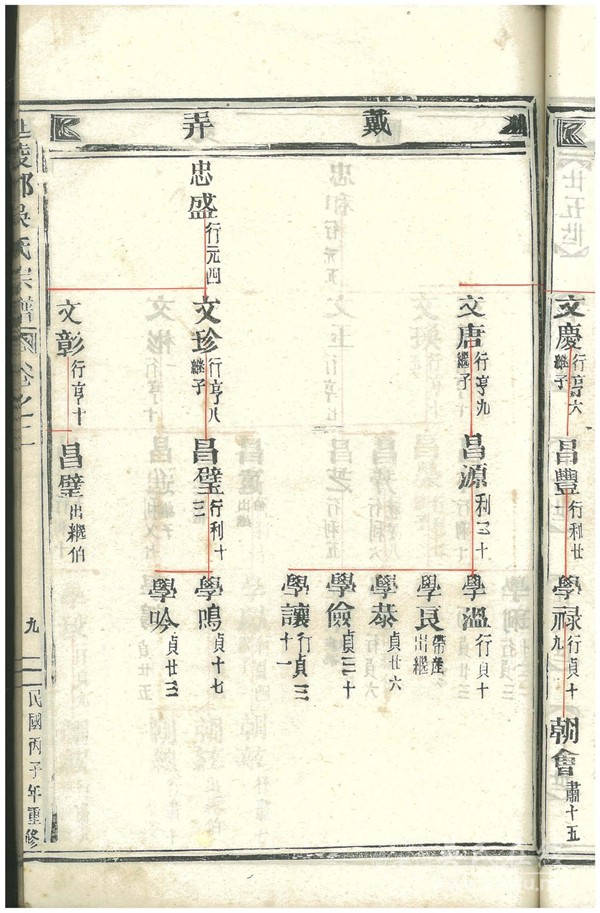 戴弄
文慶 行亨六 繼子
昌豐 行利廿
學祿 行貞十九
朝會 肅十五
文唐 行亨九 繼子
昌源 利三十
學溫 行貞十
學良 帶產出繼
學恭 貞廿六
學儉 貞三十
學讓 行貞三十一
忠盛 行元四
文珍 行亨八 繼子
昌璧 行利十三
學鳴 貞十七
學吟 貞廿三
文彰 行亨十
昌璧 出繼伯
陵郡吳氏宗譜 卷之二
九
民國丙子年重修